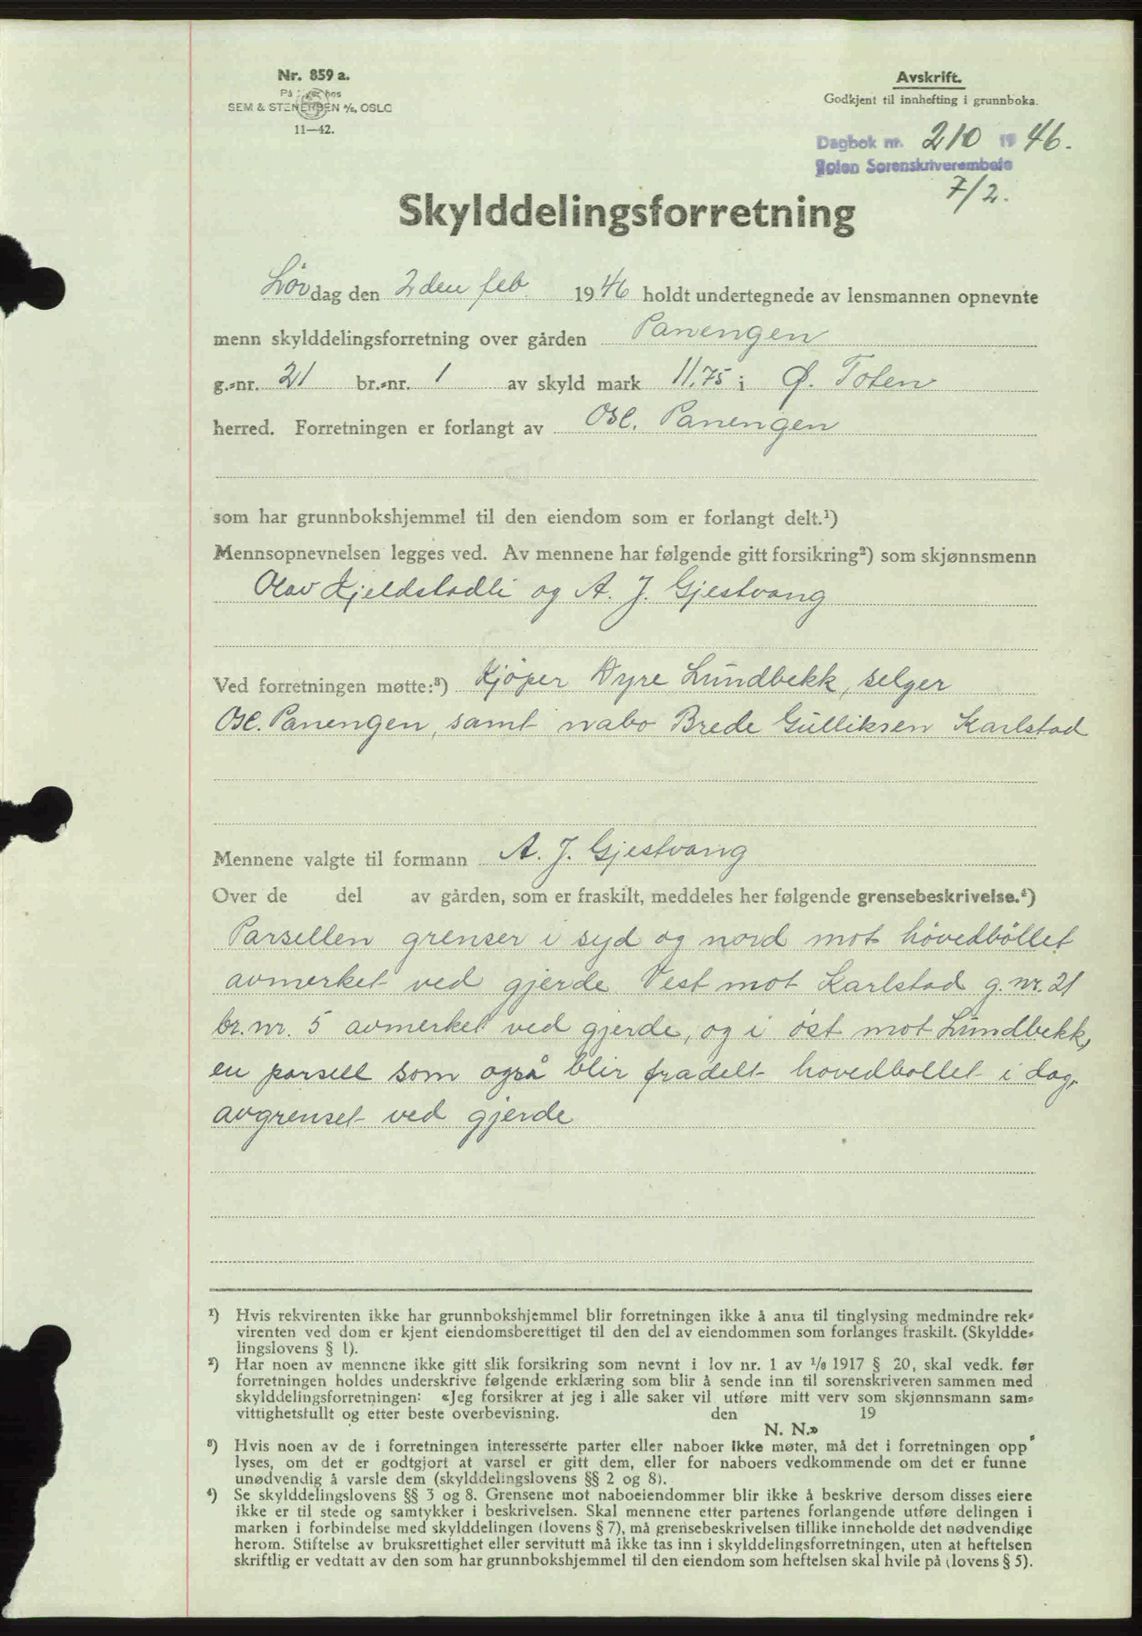 Nr. 859 a.
På lager hos
SEM & STENERSEN A/S, OSLO
11—42.
Avskrift.
Godkjent til innhefting i grunnboka.
Dagbok nr. 210 19 46.
Toten Sorenskriverembete
7/2.
Skylddelingsforretning
Løv dag den 2 den feb. 19 46 holdt undertegnede av lensmannen opnevnte
menn skylddelingsforretning over gården Panengen
g.-nr. 21 br.-nr. 1 av skyld mark 11,75 i Ø. Toten
herred. Forretningen er forlangt av Osc. Panengen
som har grunnbokshjemmel til den eiendom som er forlangt delt.¹)
Mennsopnevnelsen legges ved. Av mennene har følgende gitt forsikring²) som skjønnsmenn
Olav Kjeldstadli og A. J. Gjestvang
Ved forretningen møtte:³) Kjøper Dyre Lundbekk, selger
Osc. Panengen, samt nabo Brede Gulliksen Karlstad
Mennene valgte til formann A. J. Gjestvang
Over de del av gården, som er fraskilt, meddeles her følgende grensebeskrivelse.⁴)
Parsellen grenser i syd og nord mot hovedbøllet
avmerket ved gjerde. Vest mot Karlstad g. nr. 21
br. nr. 5 avmerket ved gjerde, og i øst mot Lundbekk,
en parsell som også blir fradelt hovedbøllet i dag,
avgrenset ved gjerde
¹) Hvis rekvirenten ikke har grunnbokshjemmel blir forretningen ikke å anta til tinglysing medmindre rek-
virenten ved dom er kjent eiendomsberettiget til den del av eiendommen som forlanges fraskilt. (Skyldde-
lingslovens § 1).
²) Har noen av mennene ikke gitt slik forsikring som nevnt i lov nr. 1 av 1/6 1917 § 20, skal vedk. før
forretningen holdes underskrive følgende erklæring som blir å sende inn til sorenskriveren sammen med
skylddelingsforretningen: «Jeg forsikrer at jeg i alle saker vil utføre mitt verv som skjønnsmann sam-
vittighetsfullt og etter beste overbevisning. den 19
N. N.»
³) Hvis noen av de i forretningen interesserte parter eller naboer ikke møter, må det i forretningen opp-
lyses, om det er godtgjort at varsel er gitt dem, eller for naboers vedkommende om det er funne
unødvendig å varsle dem (skylddelingslovens §§ 2 og 8).
⁴) Se skylddelingslovens §§ 3 og 8. Grensene mot naboeiendommer blir ikke å beskrive dersom disses eiere
ikke er til stede og samtykker i beskrivelsen. Skal mennene etter partenes forlangende utføre delingen i
marken i forbindelse med skylddelingen (lovens § 7), må grensebeskrivelsen tillike inneholde det nødvendige
herom. Stiftelse av bruksrettighet eller servitutt må ikke tas inn i skylddelingsforretningen, uten at heftelsen
skriftlig er vedtatt av den som har grunnbokshjemmel til den eiendom som heftelsen skal hvile på (lovens § 5).